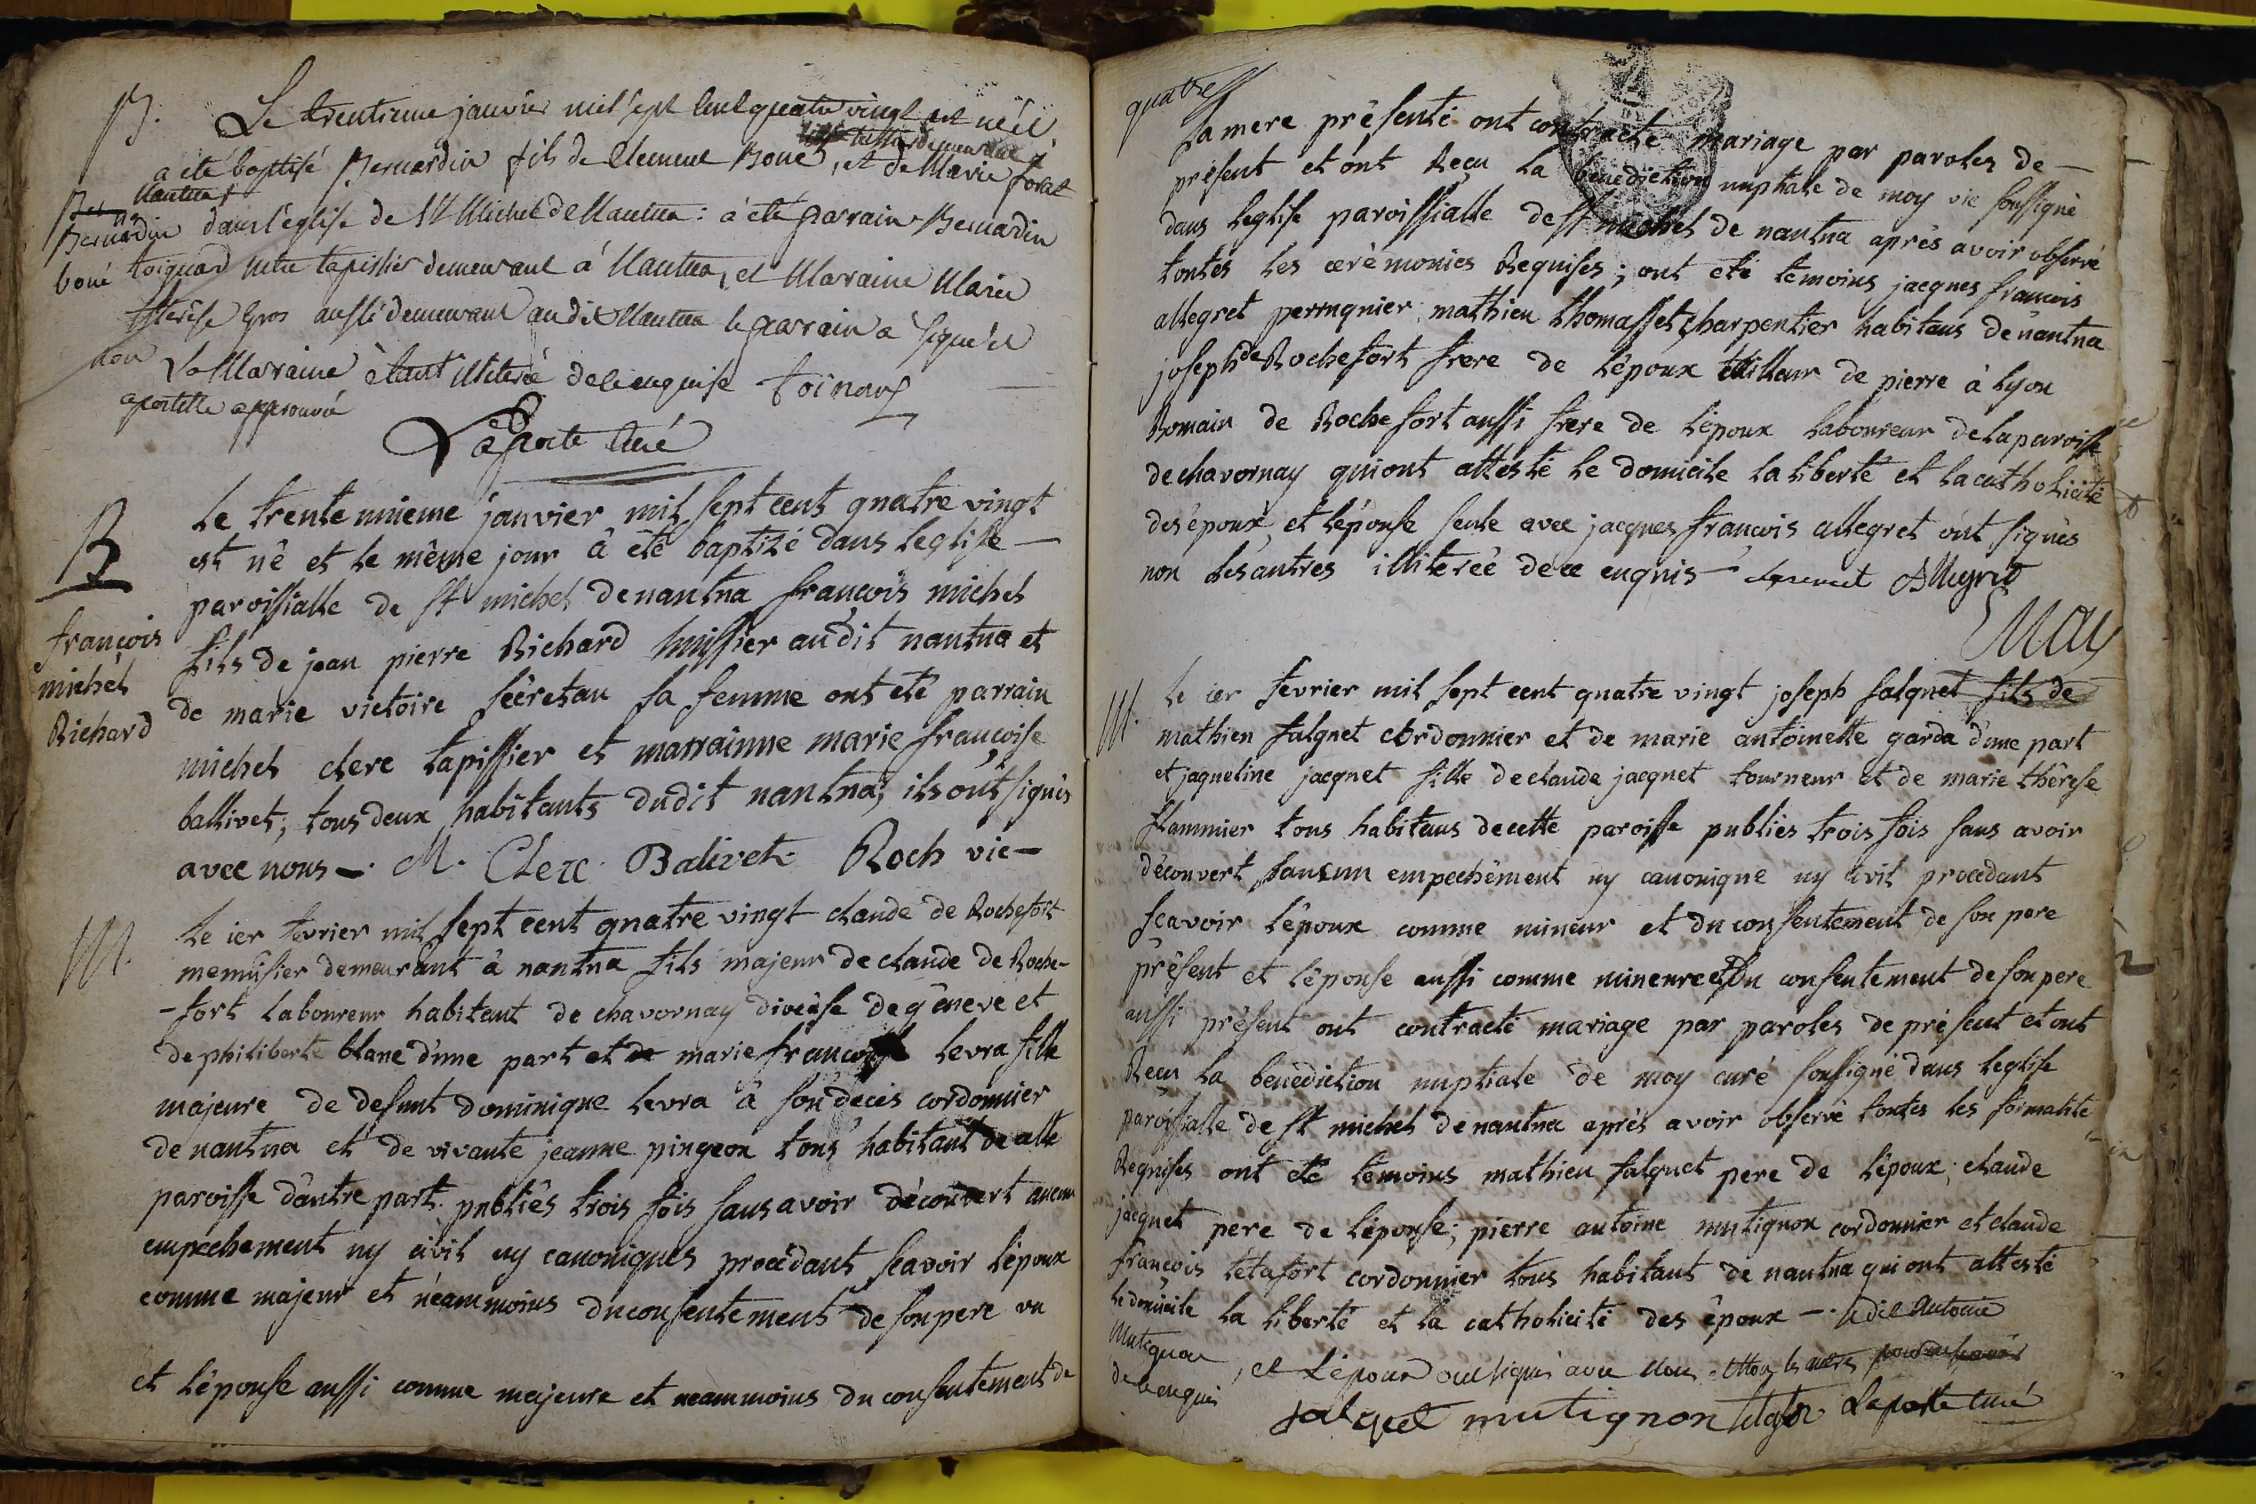 B.
Le trentieme janvier mil sept cent quatre vingt est né et
a été baptisé Bernardin fils de Clement Boué, et de Marie
Nantua
Bernardin
boué
dans l'eglise de St Michel de Nantua : a été parrain Bernardin
toignard demeurant à Nantua, et Maraine Marie
therese Gros aussi demeurant audit Nantua le parrain a signé et
non La Maraine étant illiteré de ce enquise toinard
apostille approuvée
Laporte curé
B
françois
michel
Richard
le trente unieme janvier mil sept cent quatre vingt
est né et le même jour â été baptizé dans leglise
paroissialle de st michel de nantua françois michel
fils de jean pierre Richard huissier audit nantua et
de marie victoire sécretan sa femme ont eté parrain
michel clerc tapissier et marrainne marie françoise
ballivet; tous deux habitants dudit nantua; ils ont signés
avec nous –. M. Clerc Balivet Roch vic–
M.
le ier fevrier mil sept cent quatre vingt claude de Rochefort
menuisier demeurant à nantua fils majeur de claude de Roche-
-fort laboureur habitant de chavornay diocése de géneve et
de philiberte blanc d'une part et de marie françoise levra fille
majeure de defunt dominique levra a son décés cordonnier
de nantua et de vivante jeanne pingeon tous habitant de cette
paroisse dautre part publiés trois fois sans avoir découvert aucun
empechement ny civil ny canoniques procédant scavoir lépoux
comme majeur et néammoins du consentement de son pere vu
et l'épouse aussi comme majeure et neammoins du consentement de
quatre
sa mere présente ont contracté mariage par paroles de
présent et ont Reçu la bénédiction nuptiale de moy vic soussigné
dans leglise paroissialle de st michel de nantua aprés avoir observé
toutes les cérémonies Requises; ont eté temoins jacques francois
allegret perruquier mathieu thomasset charpentier habitans de nantua
joseph de Rochefort frere de lépoux tailleur de pierre à lyon
Romain de Rochefort aussi frere de lépoux laboureur de la paroisse
de chavornay qui ont attesté le domicile la liberté et la catholicité
des époux et lépouse seule avec jacques francois allegret ont signés
non les autres illiterée de ce enquis Allegret
M.
le ier fevrier mil sept cent quatre vingt joseph falquet fils de
mathieu falquet cordonnier et de marie antoinette garda d'une part
et jaqueline jacquet fille de claude jacquet tourneur et de marie thérese
flammier tous habitans de cette paroisse publiés trois fois sans avoir
découvert aucun empechément ny canonique ny civil procédant
scavoir lépoux comme mineur et du consentement de son pere
présent et lépouse aussi comme mineure et du consentement de son pere
aussi présent ont contracté mariage par paroles de présent et ont
Reçu la bénédiction nuptiale de moy curé soussigné dans leglise
paroissialle de st michel de nantua aprés avoir observé toutes les formalité
Requises ont eté temoins mathieu falquet pere de lépoux; claude
jacquet pere de lépouse; pierre antoine mutignon cordonnier et claude
francois tetafort cordonnier tous habitant de nantua qui ont attesté
le domicile la liberté et la catholicité des époux –. ledit Antoine
Mutignon, et Lépoux ont signé avec nous
de ce enquis
falquet mutignon Laporte curé